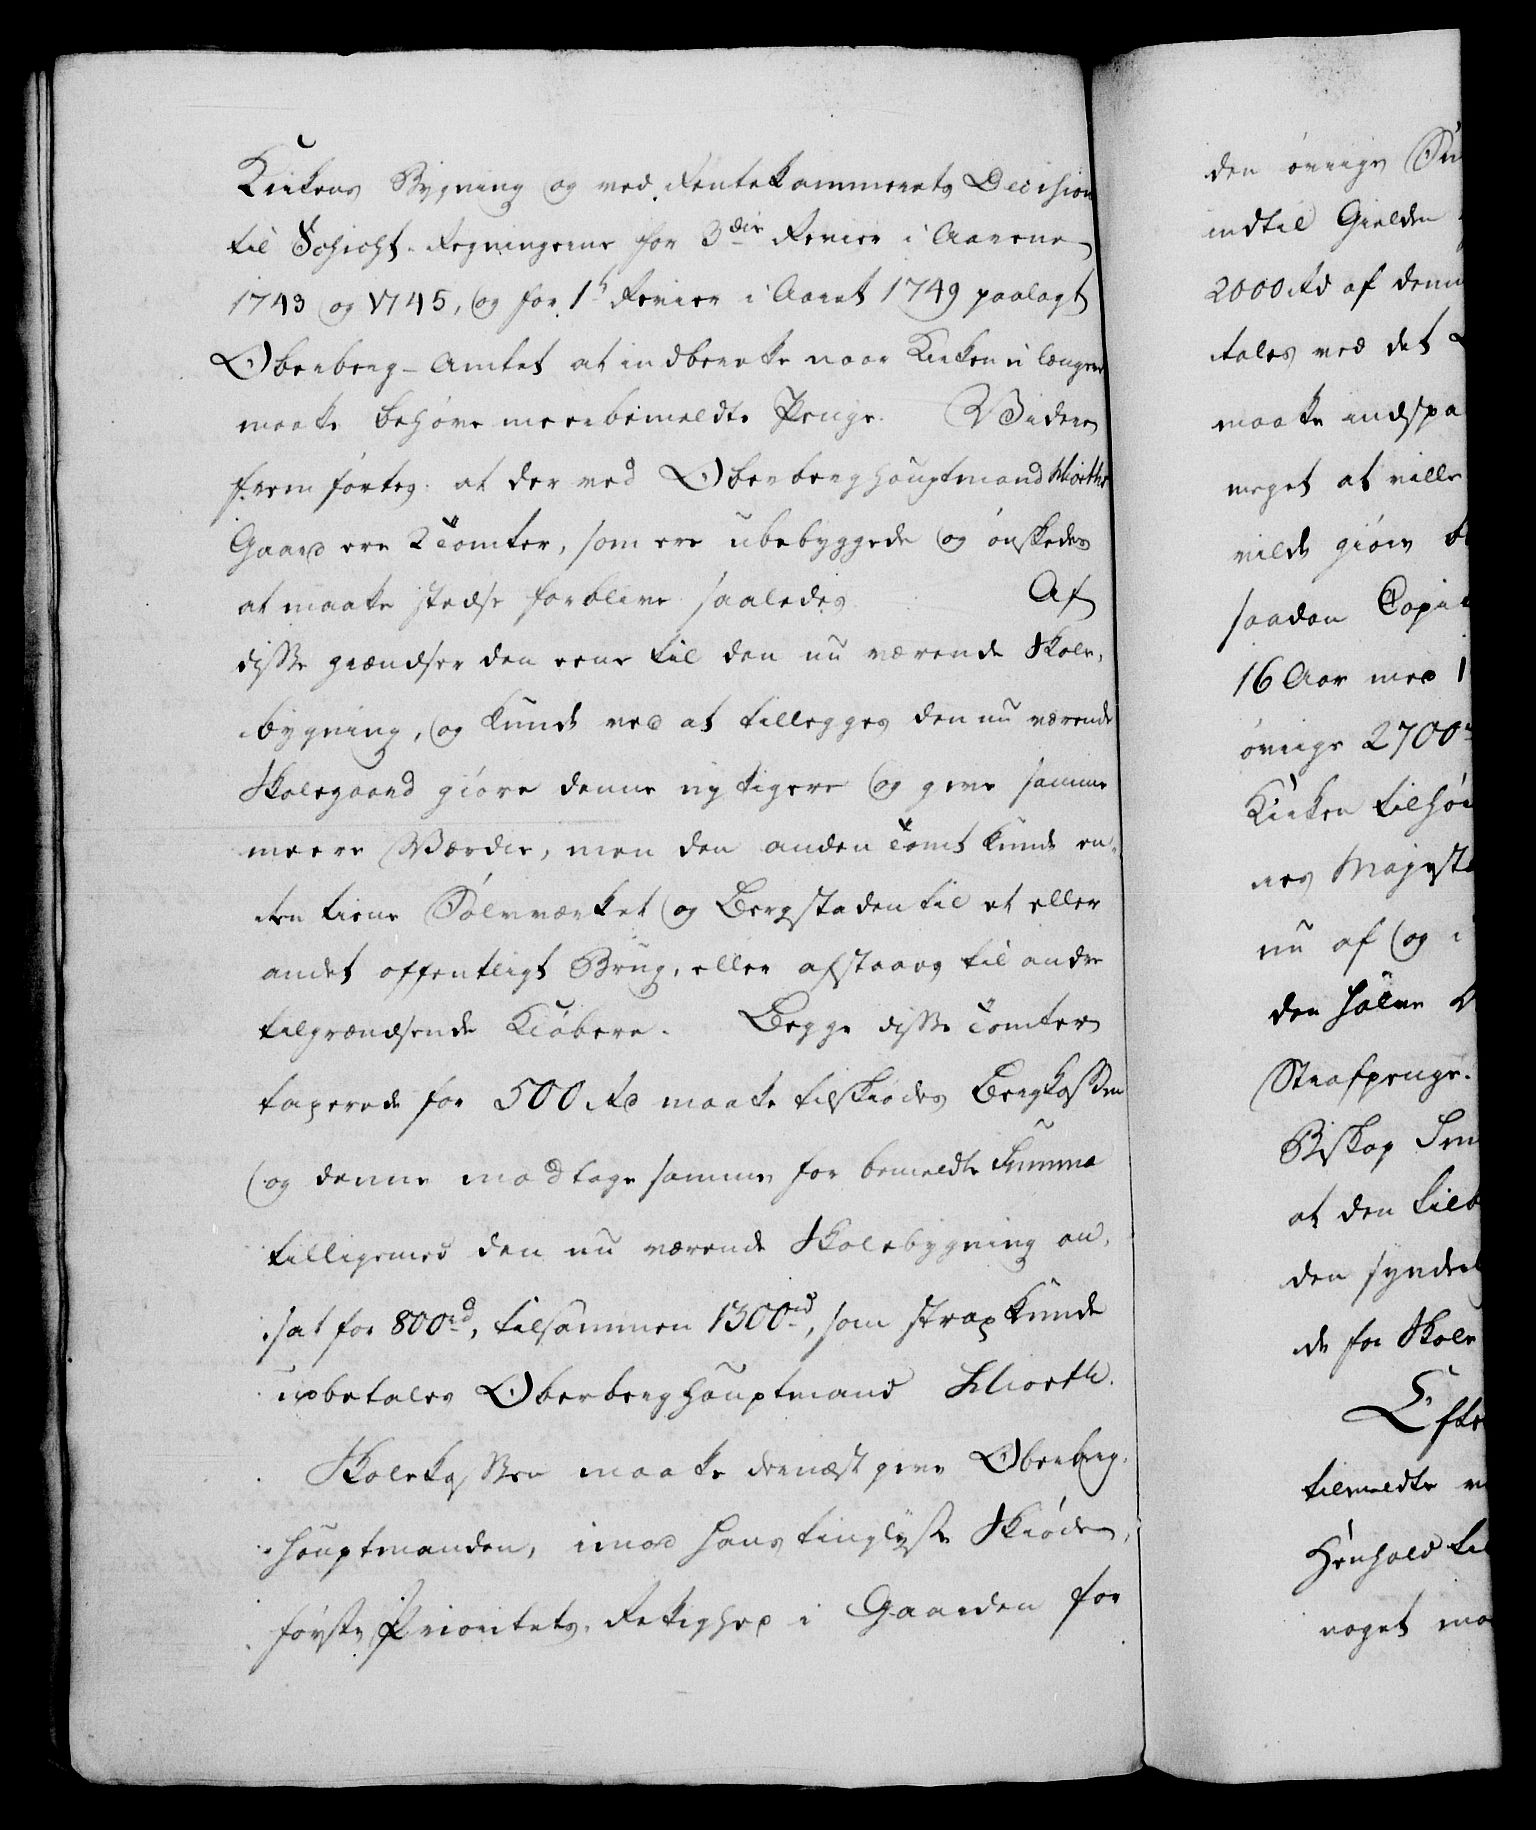 Kirkens Bygning og ved Rentekammerets Decision
til Schicht-Regningerne for 3die Revier i Aarene
1743 og 1745, og for 1te Revier i Aaret 1749 paalagt
Oberberg-Amtet at indberette naar Kirken ei længere
maatte behøve meerbemeldte Penge. Videre
fremførtes: at der ved Oberberghauptmand Hiorths
Gaard ere 2 Tomter, som ere ubebyggede og ønskedes
at maatte stedse forblive saaledes. Af
disse grændser den eene til den nu værende Skole-
bygning, og kunde ved at tillegges den nu værende
Skolegaard giøre denne nyttigere og give samme
meere Værdie, men den anden Tomt kunde en-
ten tiene Sølvværket og Bergstaden til et eller
andet offentligt Brug, eller afstaaes til andre
tilgrændsende Kiøbere. Begge disse Tomter
taxerede for 500 Rd maatte tilskiødes Bergkassen
og denne modtage samme for bemeldte Summa
tilligemed den nu værende Skolebygning an-
sat for 800rd, tilsammen 1300rd, som strax kunde
udbetales Oberberghauptmand Hiorth.
Skolekassen maatte dernæst give Oberberg-
hauptmanden, imod hans tinglyste Skiøde,
første Prioritets-Rettighed i Gaarden for
den øvrige
indtil Gielden
2000 Rd af denne
tales ved det
maatte indspa
meget at ville
vilde giøre
saadan Capi
16 Aar med
øvrige 2700rd
Kirken tilhør
res Majestæ
nu af og i
den halve
Strafpenge.
Biskop Sm
at den tilb
den synderl
de for Skole
Efte
tilmeldte
Henhold til
noget